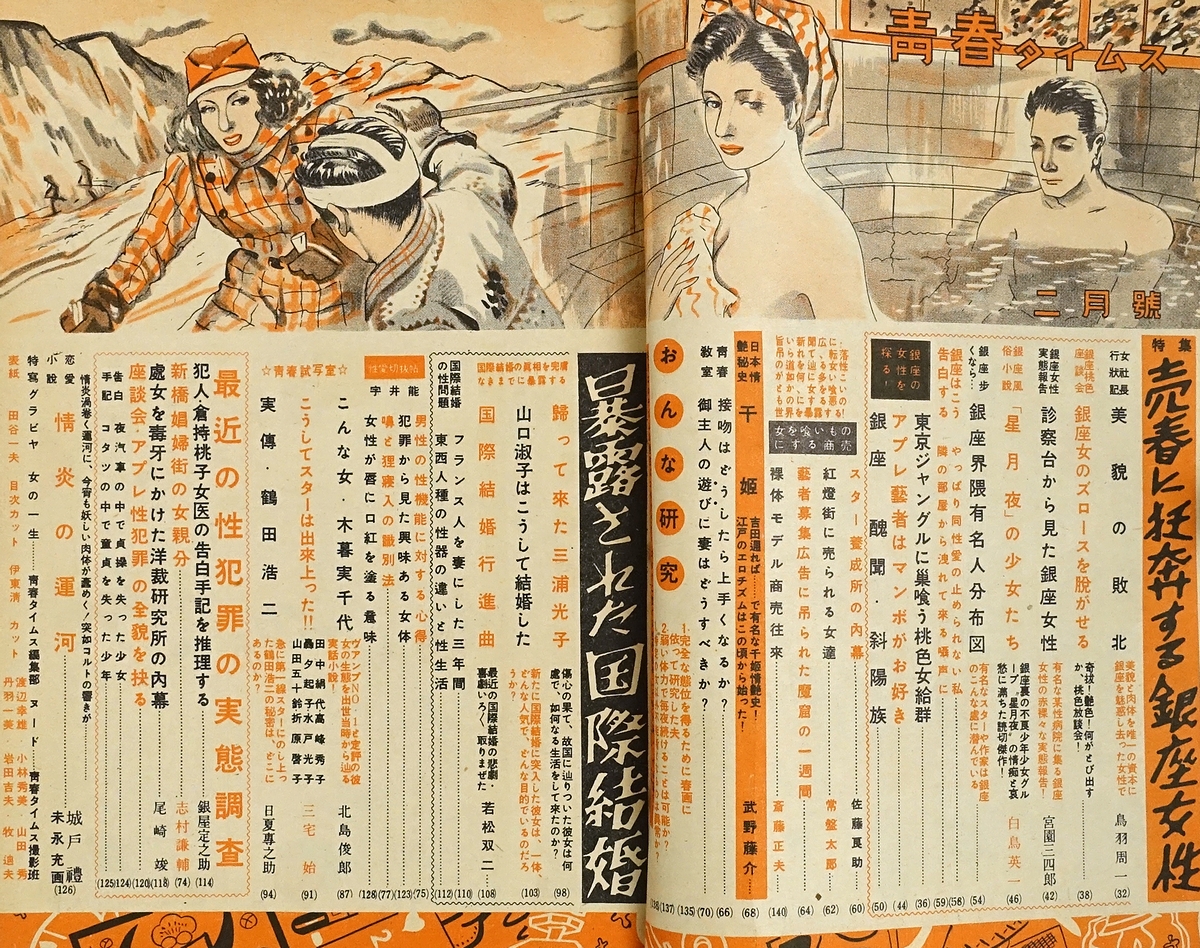 青春タイムス
二月號
特集
売春に狂奔する銀座女性
女社長行狀記
美貌の敗北
美貌と肉体を唯一の資本に銀座を魅惑し去った女性で
鳥羽周一
(32)
銀座桃色座談会
銀座女のズロースを脱がせる
奇抜!艶色!何がとび出すか、桃色放談会!
(38)
銀座女性実態報告
診察台から見た銀座女性
有名な某性病院に集る銀座女性の赤裸々な実態報告!
宮園三四郎
(42)
銀座風俗小説
「星月夜」の少女たち
銀座裏の不良少年少女グループ〝星月夜〟の情痴と哀愁に満ちた読切傑作!
白鳥英一
(46)
銀座步くなら…
銀座界隈有名人分布図
有名なスターや作家は銀座のこんな處に潜んでいる
(54)
銀座はこう告白する
やっぱり同性愛の止められない私
(58)
隣の部屋から洩れて来る囁声に
(59)
東京ジャングルに巣喰う桃色女給群
(36)
アプレ藝者はマンボがお好き
(44)
銀座の女性を探る!
銀座醜聞・斜陽族
(50)
スター養成所の内幕
佐藤艮助
(60)
紅燈街に売られる女達
常盤太郎
(62)
藝者募集広告に吊られた魔窟の一週間
(64)
女を喰いものにする商売
裸体モデル商売往來
斎藤正夫
(140)
日本情艶秘史
千姫
吉田通れば……で有名な千姫情艶史!
江戸のエロチズムはこの頃から始った!
武野藤介
(68)
青春教室
接吻はどうしたら上手くなるか?
(66)
御主人の遊びに妻はどうすべきか?
(70)
おんな研究
(135)
(137)
暴露された国際結婚
国際結婚の真相を完膚なきまでに暴露する
歸って来た三浦光子
傷心の果て、故国に辿りついた彼女は何處で、如何なる生活をして来たのか?
(98)
山口淑子はこうして結婚した
新たに国際結婚に突入した彼女は、一体、どんな人気で、どんな目的でいるのだろうか?
(103)
国際結婚行進曲
最近の国際結婚の悲劇・喜劇いろ〱取りまぜた
若松双二
(108)
国際結婚の性問題
フランス人を妻にした三年間
(110)
東西人種の性器の違いと性生活
(112)
性愛切抜帖
宇井能
男性の性機能に対する心得
(75)
犯罪から見た興味ある女体
(123)
嚊と狸寝入の識別法
(77)
女性が唇に口紅を塗る意味
(128)
☆青春試写室☆
こんな女・木暮実千代
ヴァンプNO・1と定評の彼女の生態を出世当時から辿る実話小説!
北島俊郎
(87)
こうしてスターは出來上った!!
田中絹代 高峰秀子
轟夕起子 水戸光子
山田五十鈴 折原啓子
三宅始
(91)
実傳・鶴田浩二
急に第一線スターにのし上った鶴田浩二の秘密は、どこにあるのか?
日夏專之助
(94)
最近の性犯罪の実態調査
犯人・倉持桃子女医の告白手記を推理する
銀屋定之助
(114)
新橋娼婦街の女親分
志村謙輔
(74)
處女を毒牙にかけた洋裁研究所の内幕
尾崎竣
(118)
座談会・アプレ性犯罪の全貌を抉る
(120)
告白
夜汽車の中で貞操を失った少女
(124)
手記
コタツの中で童貞を失った少年
(125)
恋愛小説
情炎の運河
情炎渦巻く運河に、今宵も妖しい肉体が蠢めく!突如コルトの響きが
城戸禮
末永充画
(126)
特寫グラビヤ 女の一生……青春タイムス編集部 ヌード……青春タイムス撮影班
表紙 田谷一夫 目次カット 伊東清 カット 渡辺幸雄・小林秀美・山田秀 丹羽一美・岩田吉夫・牧適夫